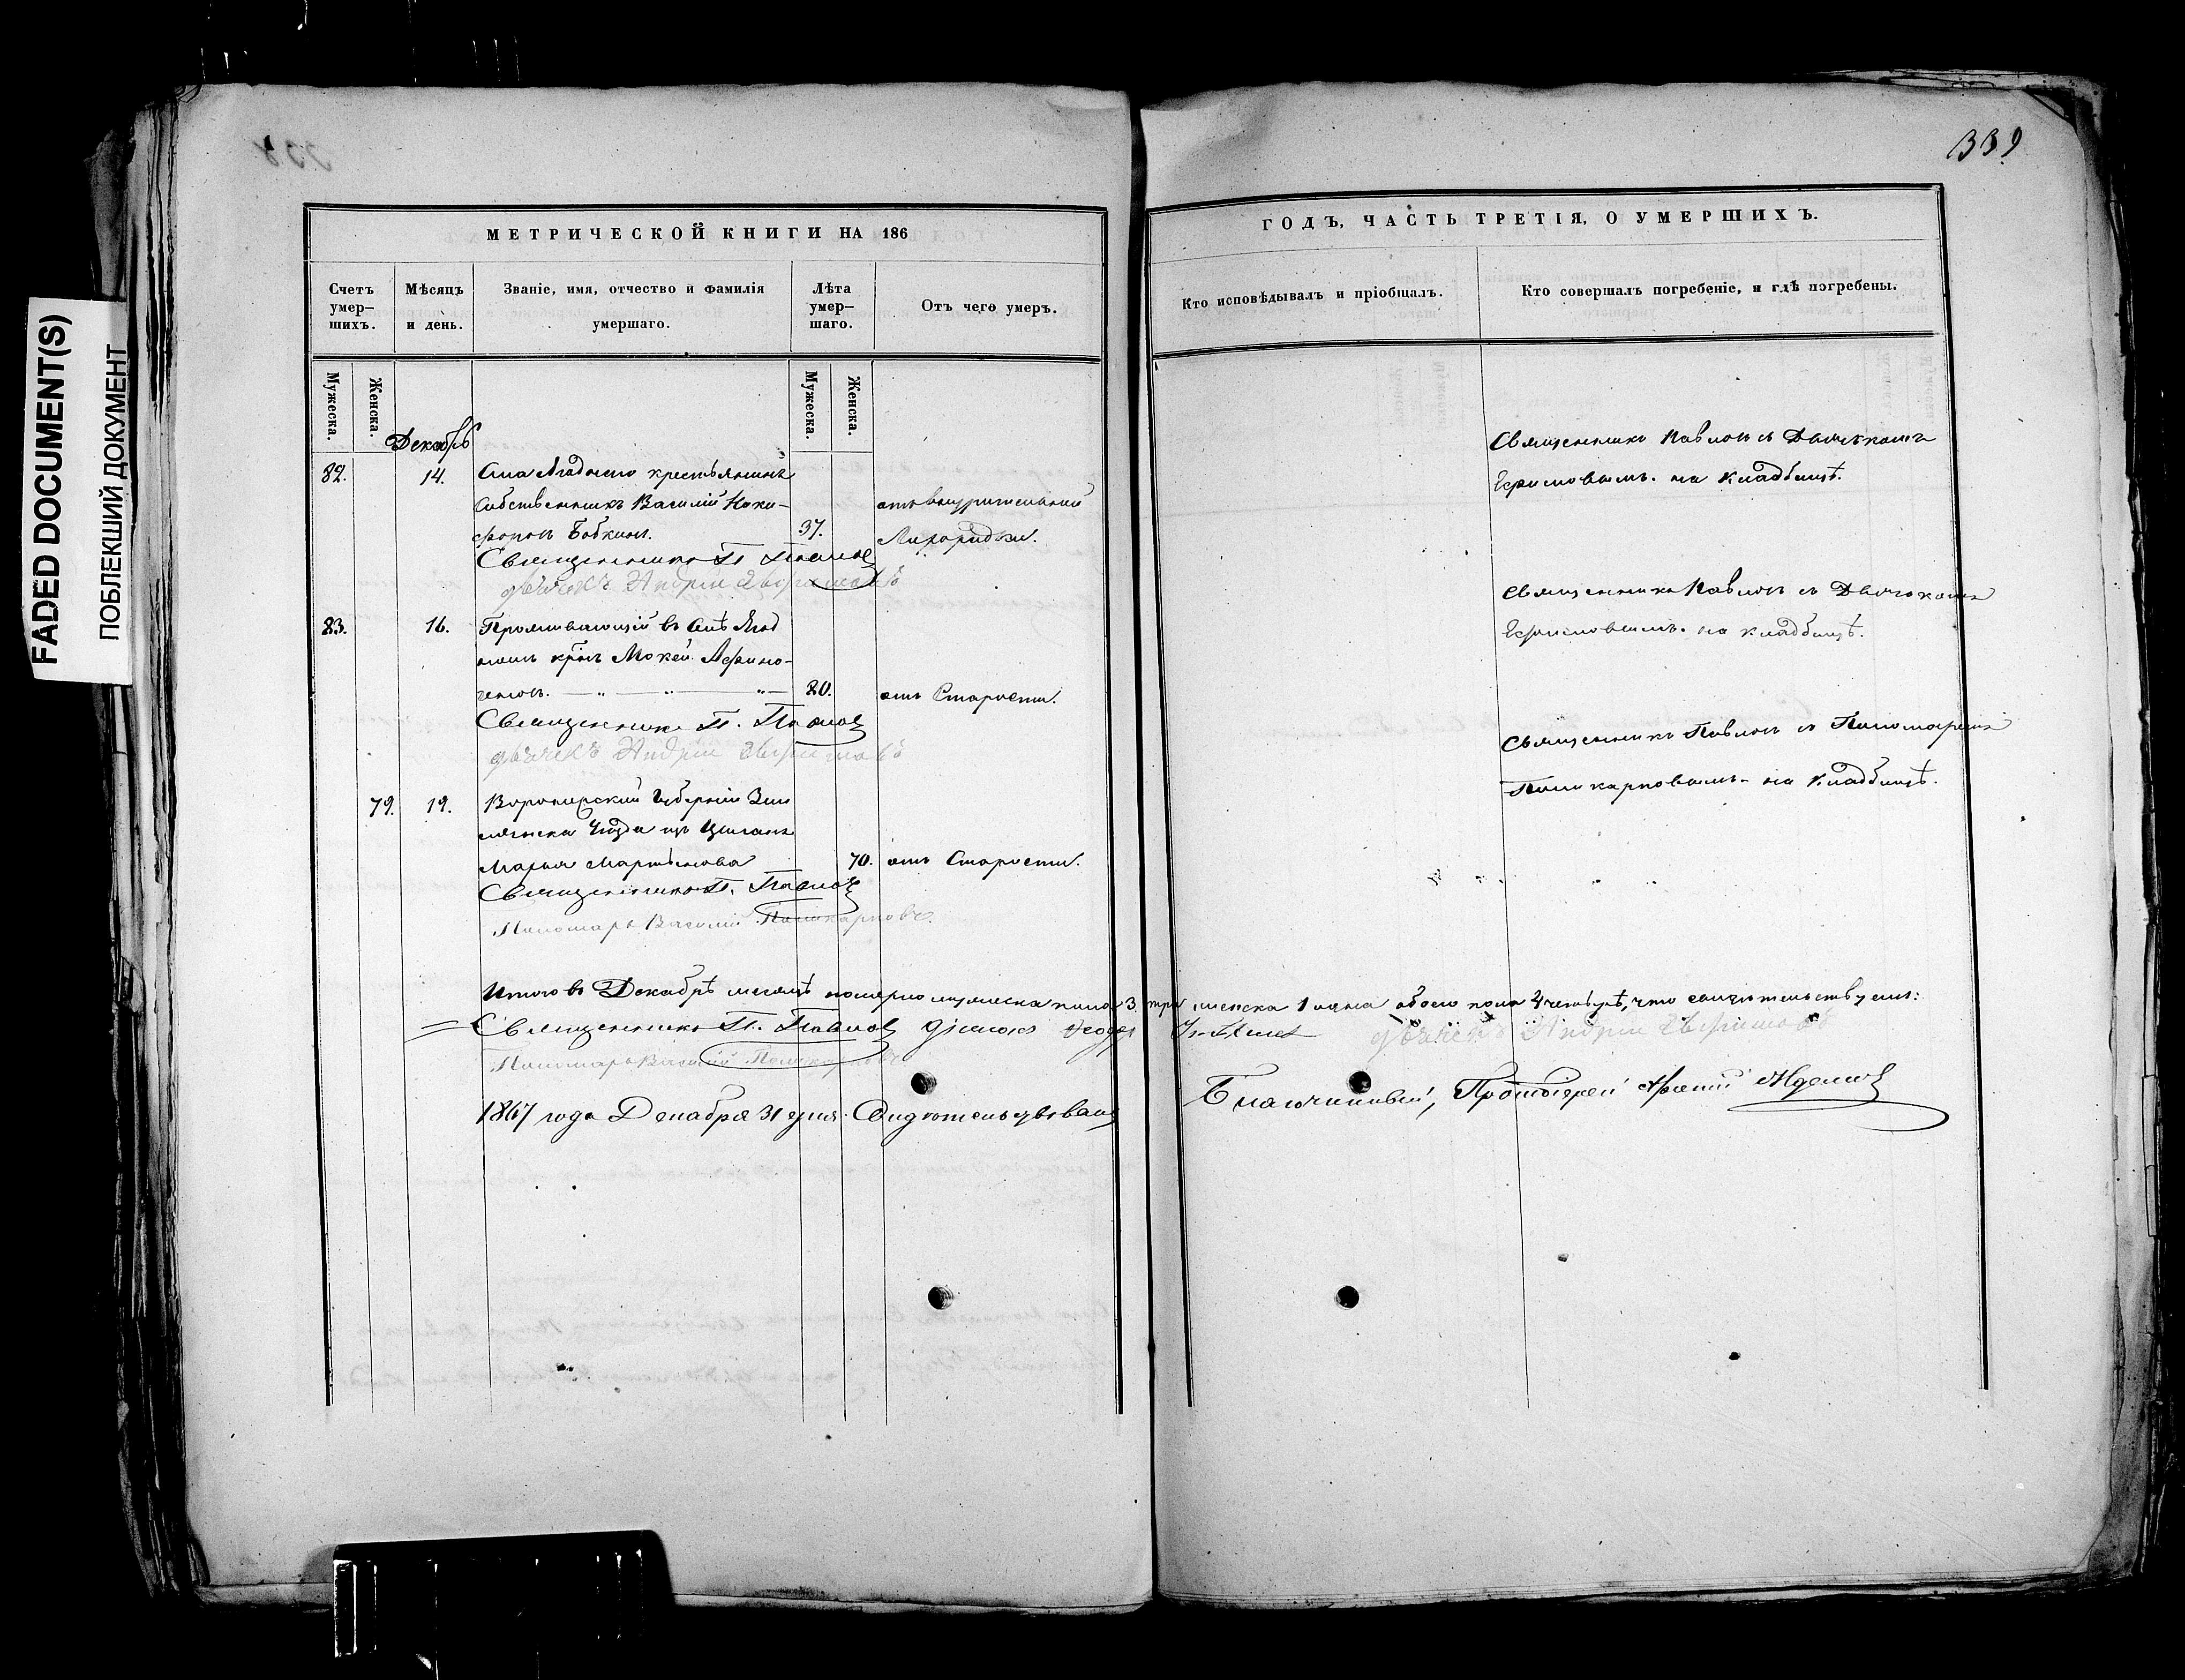 FADED DOCUMENT(S)
ПОБЛЕКШИЙ ДОКУМЕНТ
МЕТРИЧЕСКОЙ КНИГИ НА 186
Счетъ умер-шихъ.
Мѣсяцъ и день.
Званіе, имя, отчество и фамилія умершаго.
Лѣта умер-шаго.
Отъ чего умеръ.
Мужеска.
Женска.
Мужеска.
Женска.
Декабрь
82. 14. Села крестьянинъ
собственникъ Василій Ники-
форовъ Бобкинъ. 37. отъ внутрительной
Лихорадки.
Священникъ П. Павловъ
дьячекъ Андрей Ефимовъ
83. 16. Проживающій въ Селѣ
Мокей
80. отъ Старости.
Священникъ П. Павловъ
дьячекъ Андрей Ефимовъ
79. 19. Воронежской Губерніи Зем
лянска Уѣзда изъ Цыганъ
Марья Мартынова 70. отъ Старости.
Священникъ П. Павловъ
Пономарь Василій Поликарповъ.
Итого въ Декабрѣ месяцѣ померло мужеска пола 3. три
Священникъ П. Павловъ діаконъ
Пономарь Василій Поликарповъ
1867 года Декабря 31 дня. Свидѣтельствовалъ
339
ГОДЪ, ЧАСТЬ ТРЕТІЯ, О УМЕРШИХЪ.
Кто исповѣдывалъ и пріобщалъ.
Кто совершалъ погребеніе, и гдѣ погребены.
Священникъ Павловъ съ Дьячкомъ
Ефимовымъ. на Кладбищѣ.
Священникъ Павловъ съ Дьячкомъ
Ефимовымъ. на кладбищѣ.
Священникъ Павловъ съ Пономаремъ
Поликарповымъ - на Кладбищѣ.
женска 1 одна обоего пола 4 четыре, что свидѣтельствуемъ:
дьячекъ Андрей Ефимовъ
Благочинный, Протоіерей